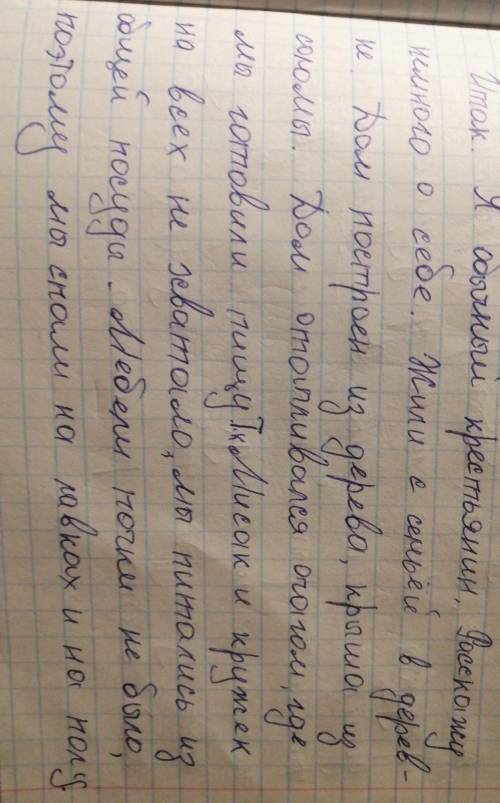 Итак. Я обычный крестьянин. Расскажу
немного о себе. Жили с семьёй в дерев-
не. Дом построен из дерева, крыша из
соломы. Дом отапливался очагом, где
мы готовили пищу. Тк Мисак и кружек
на всех не хватало, мы питались из
общей посуды. Мебели почти не было,
поэтому мы спали на лавках и на полу